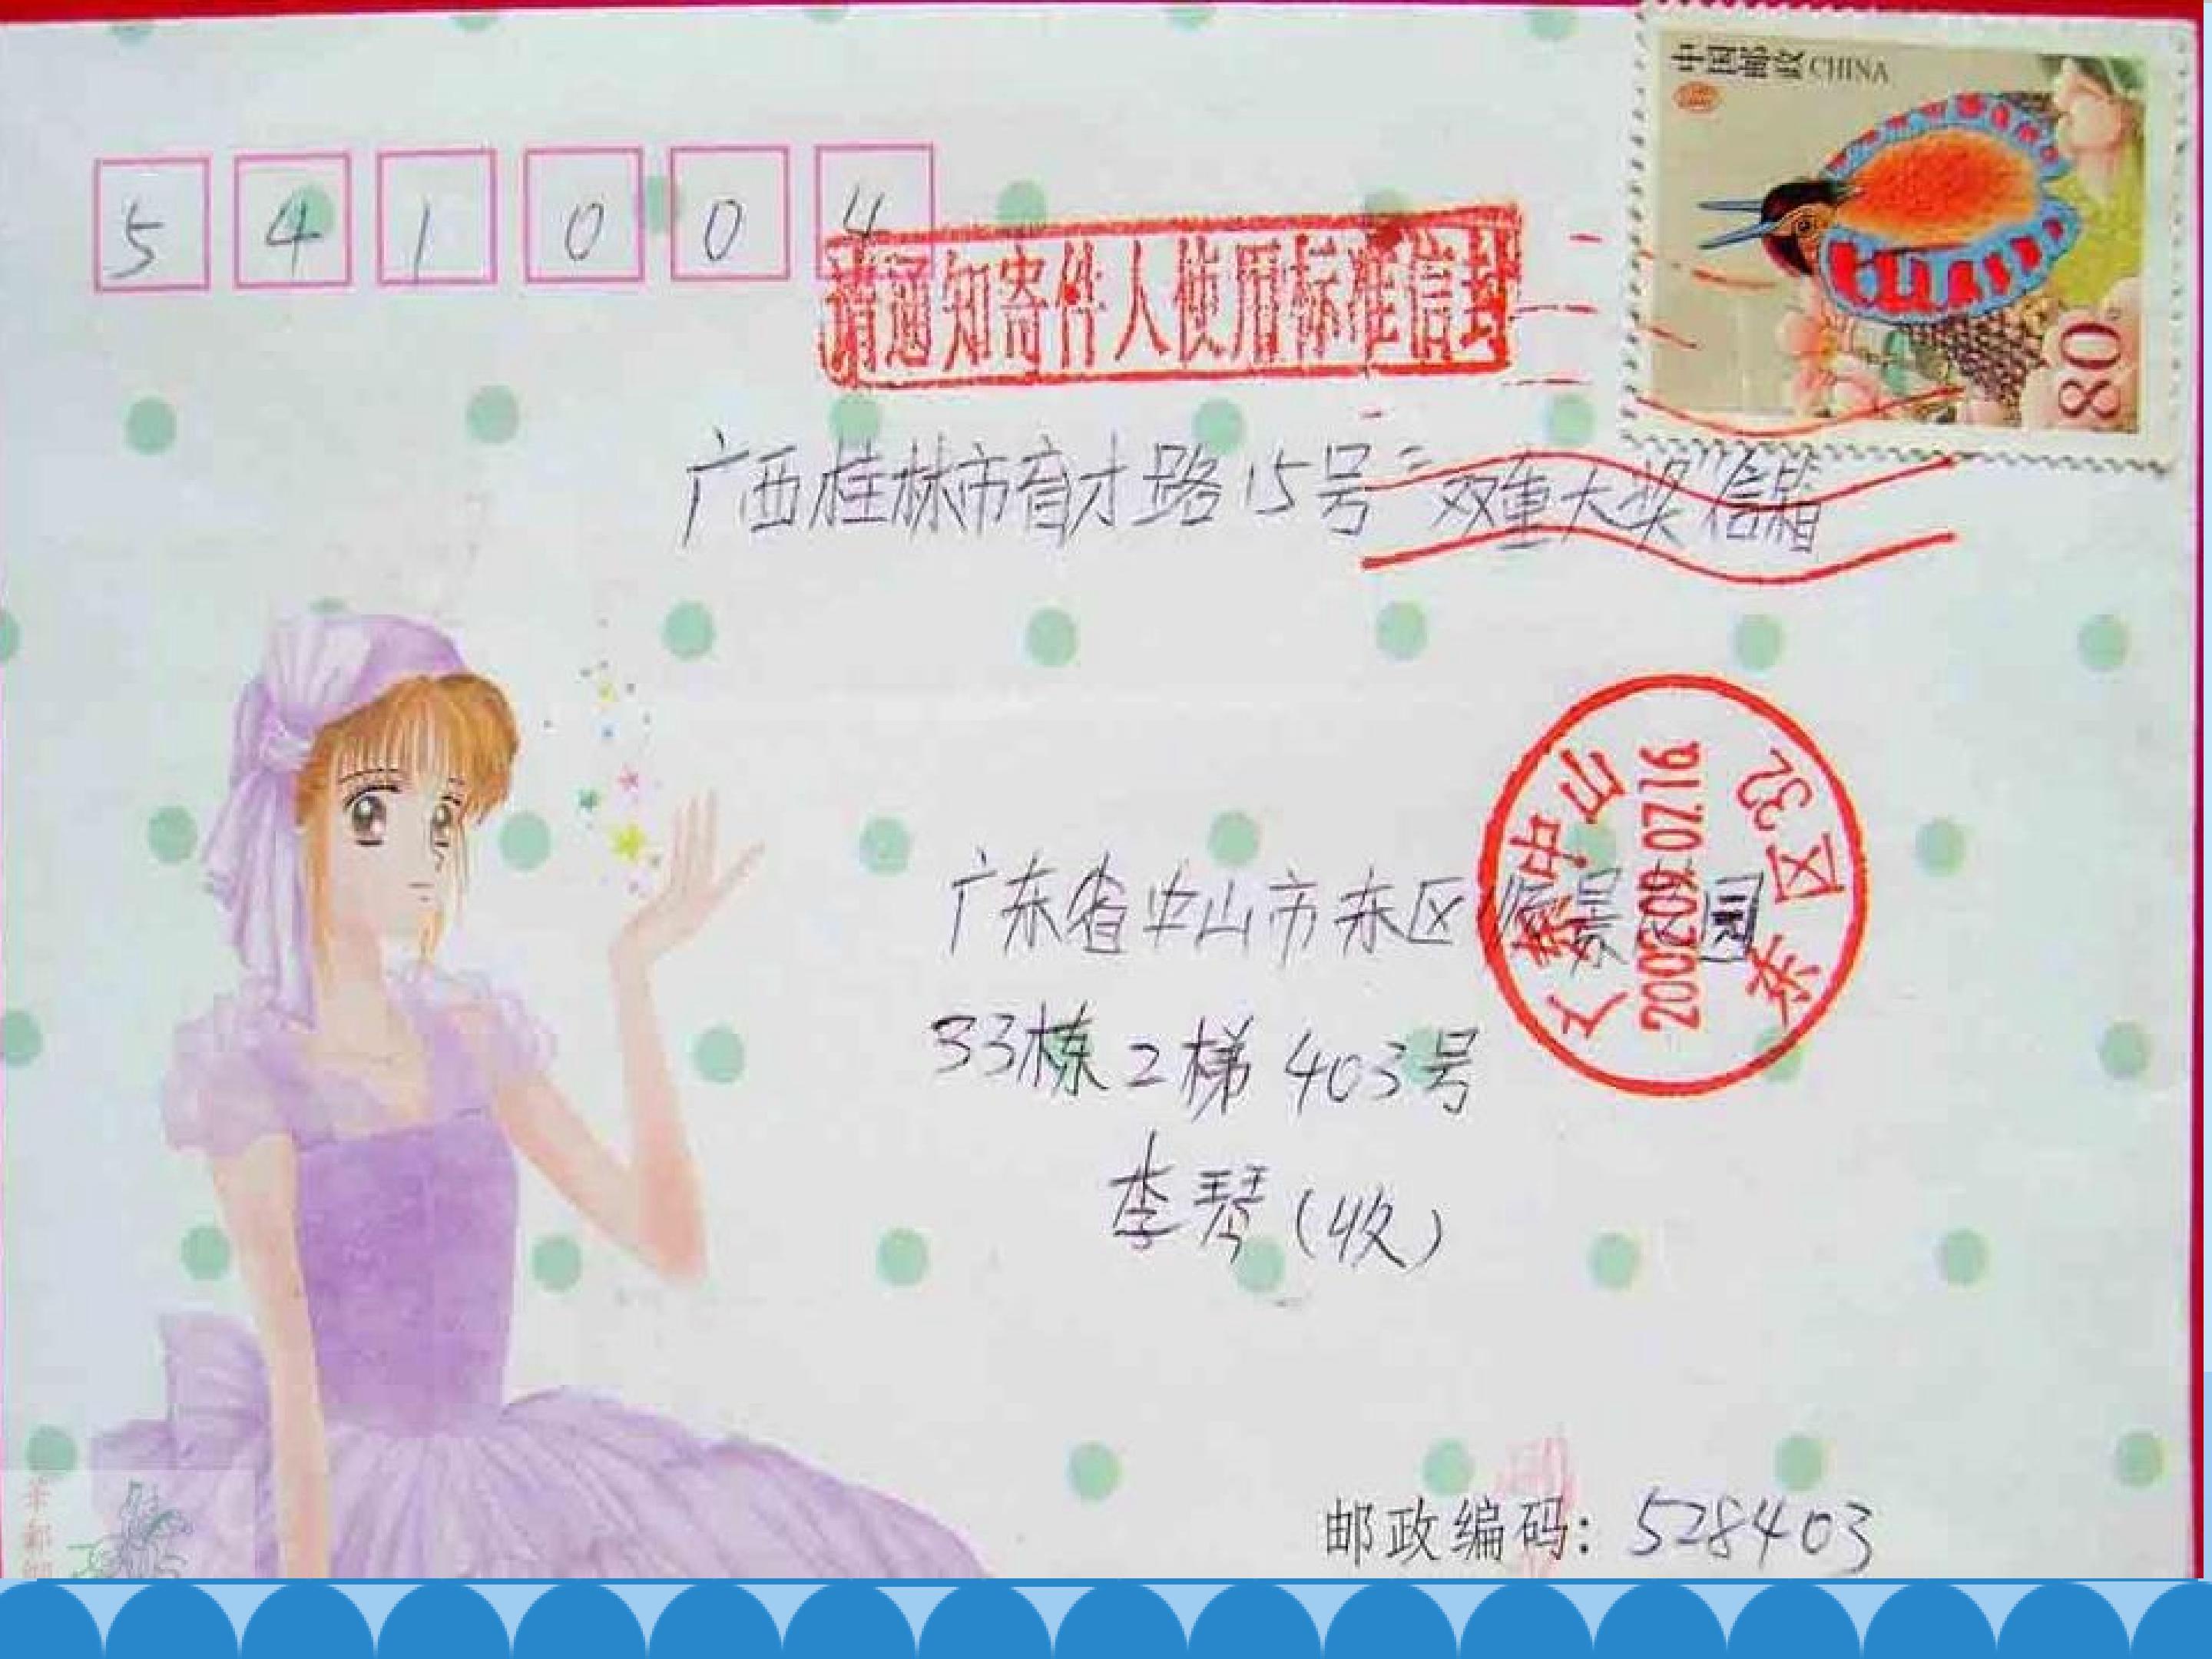 中国邮政CHINA
80
5 4 1 0 0 4
请通知寄件人使用标准信封
广西桂林市育才路15号“双重大奖”信箱
广东中山
2002.09.07.16
东区32
广东省中山市东区 景 园
33栋2梯403号
李琴(收)
邮政编码: 528403